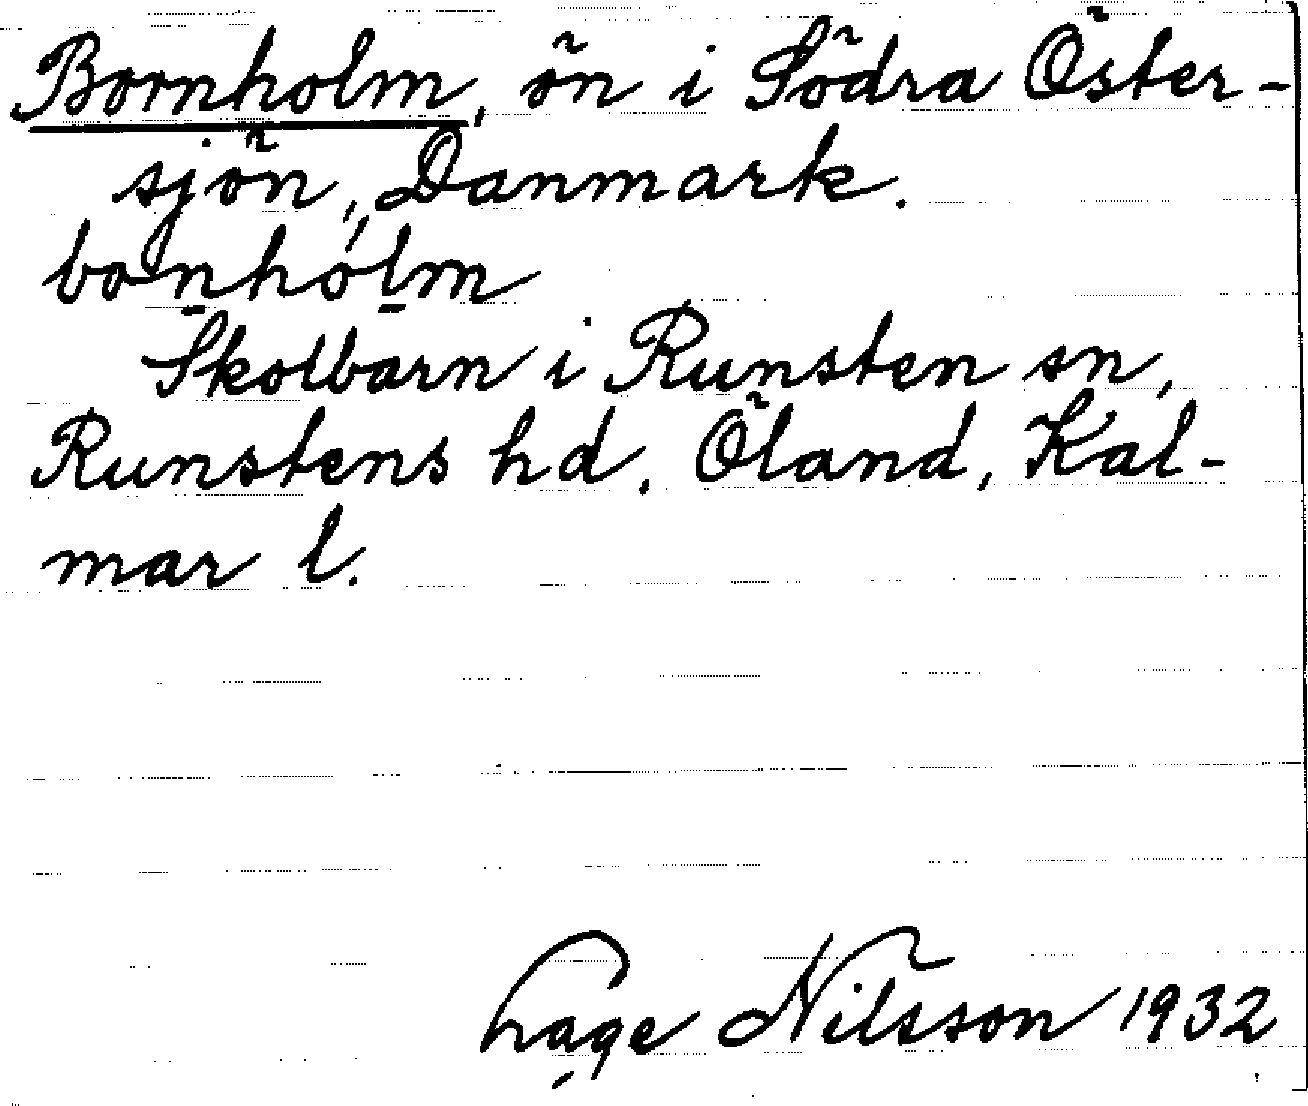 Bornholm, ön i Södra Öster-
sjön, Danmark.
bonhólm
Skolbarn i Runsten sn,
Runstens hd. Öland, Kal-
mar l.
Låge Nilsson 1932